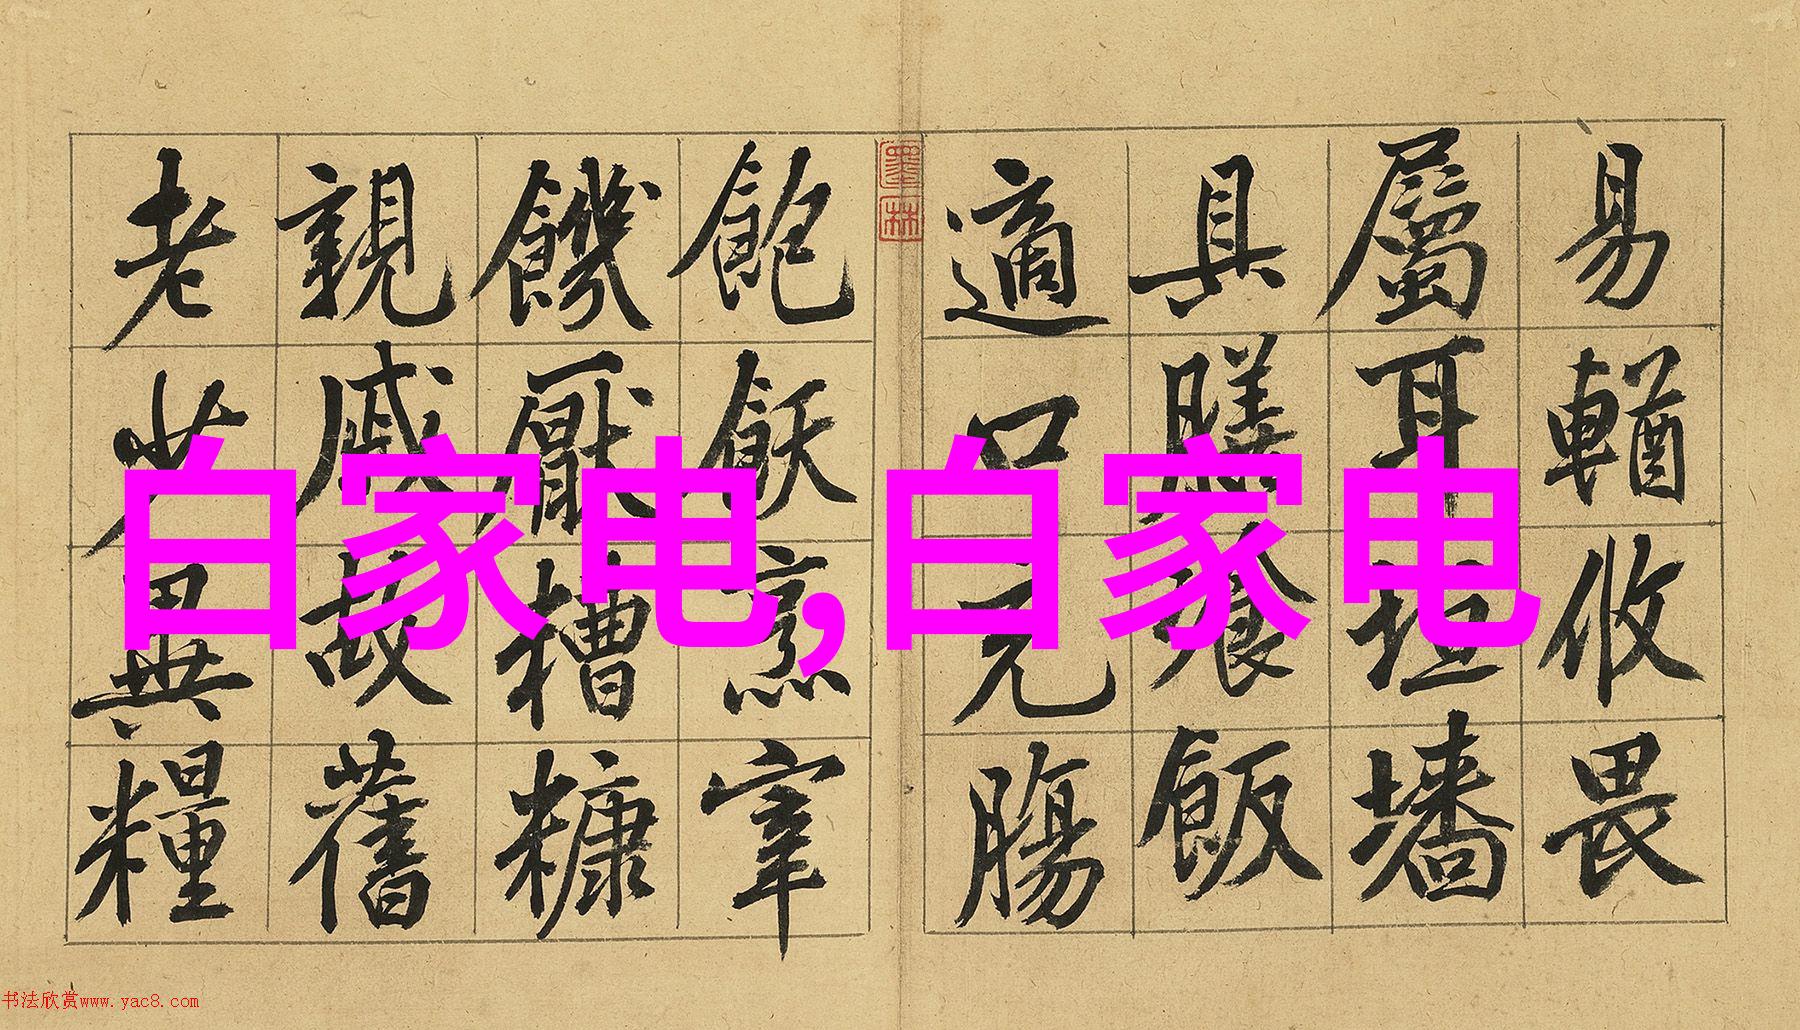 易輶攸畏
屬耳垣墻
具膳飡飯
適口充腸
墨林
飽飫烹宰
饑厭糟糠
親戚故舊
老少異糧
白家电,白家电
书法欣赏www.yac8.com